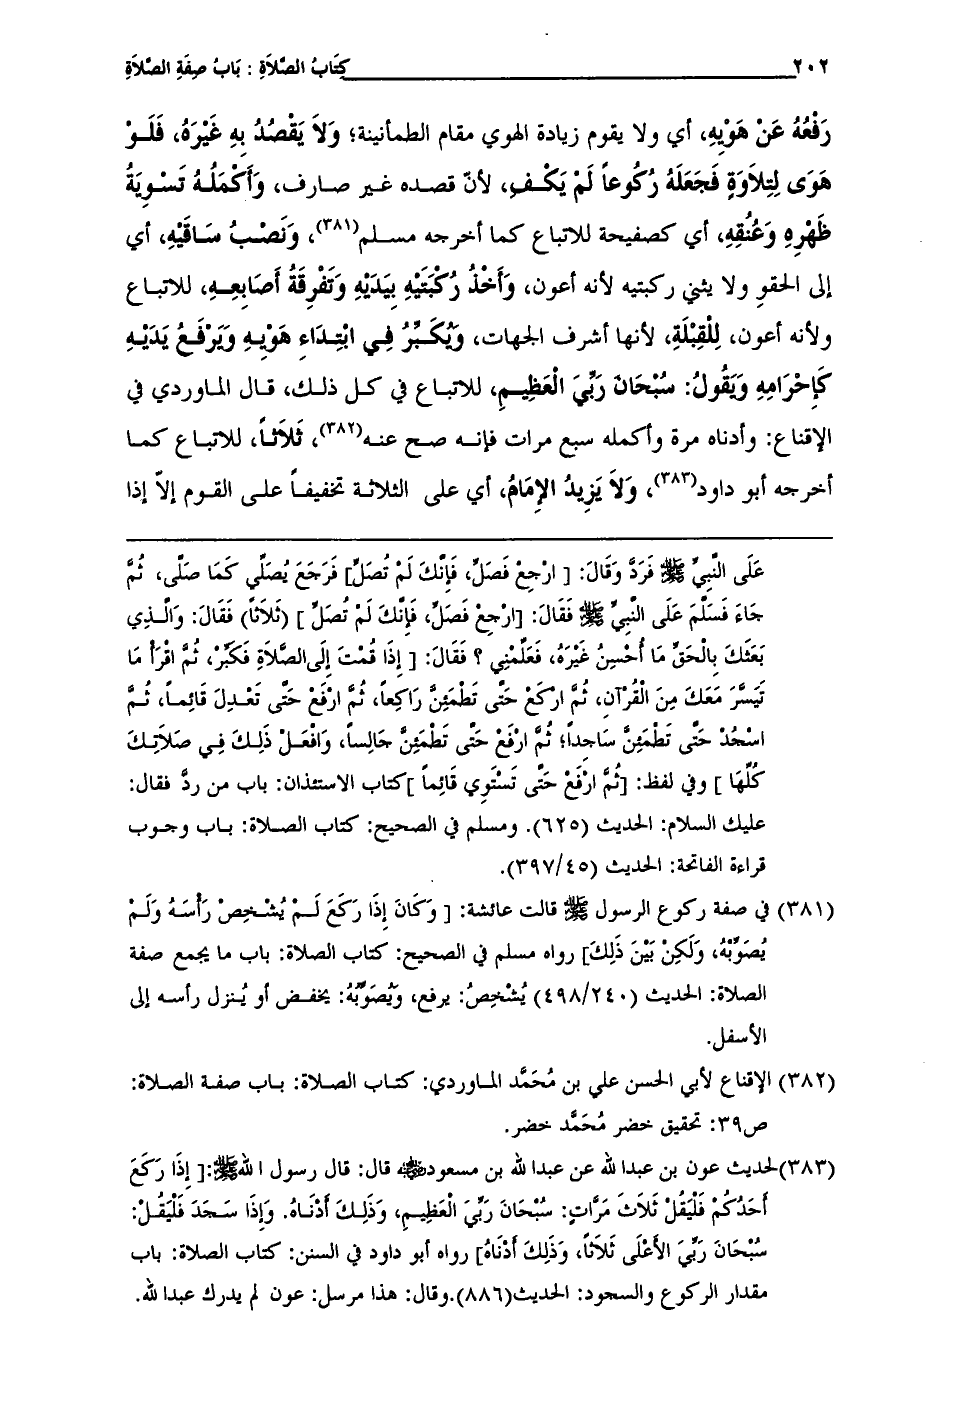 ٢٠٢ كِتَابُ الصَّلاَةِ : بَابُ صِفَةِ الصَّلاَةِ
رَفْعُهُ عَنْ هَوْيِهِ، أي ولا يقوم زيادة الهوي مقام الطمأنينة؛ وَلاَ يَقْصُدُ بِهِ غَيْرَهُ، فَلَوْ
هَوَى لِتِلاَوَةٍ فَجَعَلَهُ رُكُوعاً لَمْ يَكْفِ، لأنّ قصده غير صارف، وَأَكْمَلُهُ تَسْوِيَةُ
ظَهْرِهِ وَعُنُقِهِ، أي كصفيحة للاتباع كما أخرجه مسلم(٣٨١)، وَنَصْبُ سَاقَيْهِ، أي
إلى الحقو ولا يثني ركبتيه لأنه أعون، وَأَخْذُ رُكْبَتَيْهِ بِيَدَيْهِ وَتَفْرِقَةُ أَصَابِعِهِ، للاتباع
ولأنه أعون، لِلْقِبْلَةِ، لأنها أشرف الجهات، وَيُكَبِّرُ فِي ابْتِدَاءِ هَوْيِهِ وَيَرْفَعُ يَدَيْهِ
كَإِحْرَامِهِ وَيَقُولُ: سُبْحَانَ رَبِّيَ الْعَظِيمِ، للاتباع في كل ذلك، قال الماوردي في
الإقناع: وأدناه مرة وأكمله سبع مرات فإنه صح عنه(٣٨٢)، ثَلاَثاً، للاتباع كما
أخرجه أبو داود(٣٨٣)، وَلاَ يَزِيدُ الإِمَامُ، أي على الثلاثة تخفيفاً على القوم إلاّ إذا
عَلَى النَّبِيِّ ﷺ فَرَدَّ وَقَالَ: [ ارْجِعْ فَصَلِّ، فَإِنَّكَ لَمْ تُصَلِّ] فَرَجَعَ يُصَلِّي كَمَا صَلَّى، ثُمَّ
جَاءَ فَسَلَّمَ عَلَى النَّبِيِّ ﷺ فَقَالَ: [ارْجِعْ فَصَلِّ، فَإِنَّكَ لَمْ تُصَلِّ ] (ثَلاَثاً) فَقَالَ: وَالَّذِي
بَعَثَكَ بِالْحَقِّ مَا أُحْسِنُ غَيْرَهُ، فَعَلِّمْنِي ؟ فَقَالَ: [ إِذَا قُمْتَ إِلَى الصَّلاَةِ فَكَبِّرْ، ثُمَّ اقْرَأْ مَا
تَيَسَّرَ مَعَكَ مِنَ الْقُرْآنِ، ثُمَّ ارْكَعْ حَتَّى تَطْمَئِنَّ رَاكِعاً، ثُمَّ ارْفَعْ حَتَّى تَعْدِلَ قَائِماً، ثُمَّ
اسْجُدْ حَتَّى تَطْمَئِنَّ سَاجِداً؛ ثُمَّ ارْفَعْ حَتَّى تَطْمَئِنَّ جَالِساً، وَافْعَلْ ذَلِكَ فِي صَلاَتِكَ
كُلِّهَا ] وفي لفظ: [ثُمَّ ارْفَعْ حَتَّى تَسْتَوِي قَائِماً ]كتاب الاستئذان: باب من ردَّ فقال:
عليك السلام: الحديث (٦٢٥). ومسلم في الصحيح: كتاب الصلاة: باب وجوب
قراءة الفاتحة: الحديث (٣٩٧/٤٥).
(٣٨١) في صفة ركوع الرسول ﷺ قالت عائشة: [ وَكَانَ إِذَا رَكَعَ لَمْ يُشْخِصْ رَأْسَهُ وَلَمْ
يُصَوِّبْهُ، وَلَكِنْ بَيْنَ ذَلِكَ] رواه مسلم في الصحيح: كتاب الصلاة: باب ما يجمع صفة
الصلاة: الحديث (٤٩٨/٢٤٠) يُشْخِصُ: يرفع، وَيُصَوِّبُهُ: يخفض أو يُنزل رأسه إلى
الأسفل.
(٣٨٢) الإقناع لأبي الحسن علي بن مُحَمَّد الماوردي: كتاب الصلاة: باب صفة الصلاة:
ص٣٩: تحقيق خضر مُحَمَّد خضر.
(٣٨٣)لحديث عون بن عبدالله عن عبدالله بن مسعودؓ قال: قال رسول اللهﷺ:[ إِذَا رَكَعَ
أَحَدُكُمْ فَلْيَقُلْ ثَلاَثَ مَرَّاتٍ: سُبْحَانَ رَبِّيَ الْعَظِيمِ، وَذَلِكَ أَدْنَاهُ. وَإِذَا سَجَدَ فَلْيَقُلْ:
سُبْحَانَ رَبِّيَ الأَعْلَى ثَلاَثاً، وَذَلِكَ أَدْنَاهُ] رواه أبو داود في السنن: كتاب الصلاة: باب
مقدار الركوع والسجود: الحديث(٨٨٦).وقال: هذا مرسل: عون لم يدرك عبدالله.